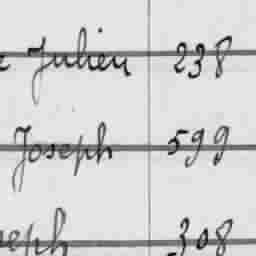 Julien 238
Joseph 599
eph 308